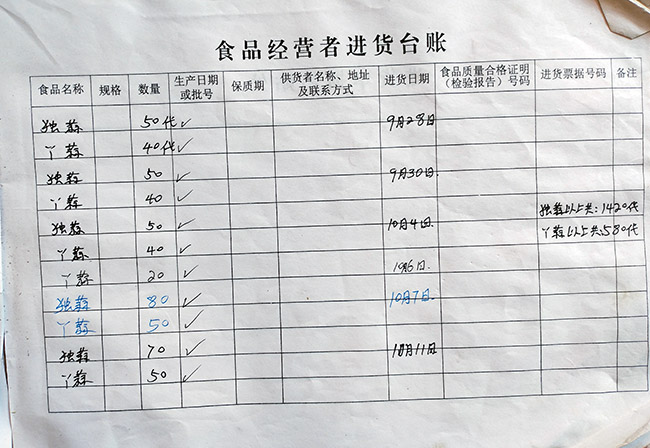 食品经营者进货台账
食品名称 规格 数量 生产日期或批号 保质期 供货者名称、地址及联系方式 进货日期 食品质量合格证明（检验报告）号码 进货票据号码 备注
独蒜 50代 ✓ 9月28日
丫蒜 40代 ✓
独蒜 50 ✓ 9月30日
丫蒜 40 ✓
独蒜以上共:1420代
独蒜 50 ✓ 10月4日
丫蒜以上共580代
丫蒜 40 ✓
丫蒜 20 ✓ 10月6日.
独蒜 80 ✓ 10月7日.
丫蒜 50 ✓
独蒜 70 ✓ 10月11日
丫蒜 50 ✓